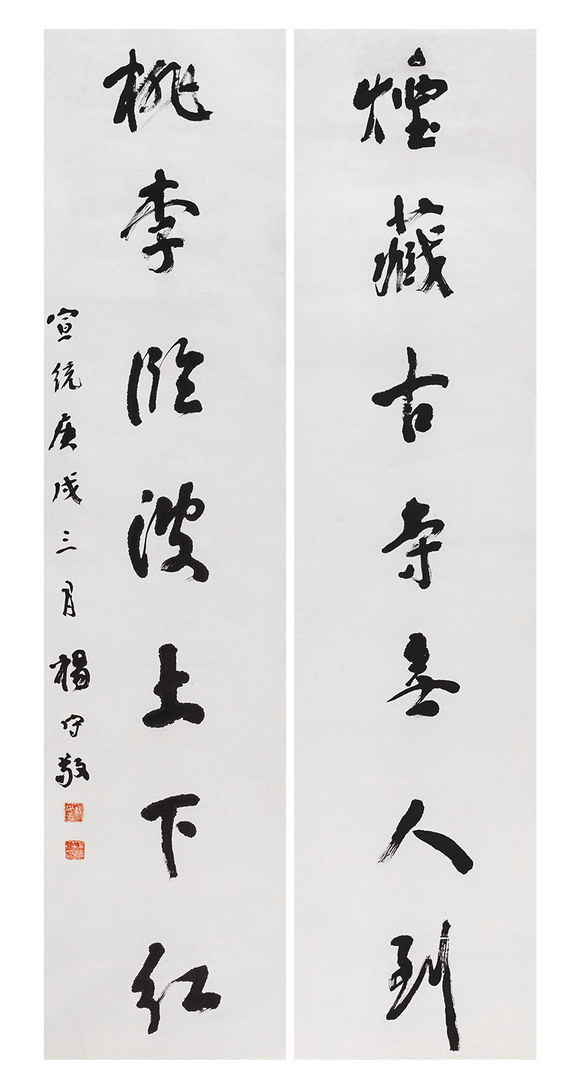 煙藏古寺無人到
桃李臨波上下紅
宣統庚戌三月楊守敬